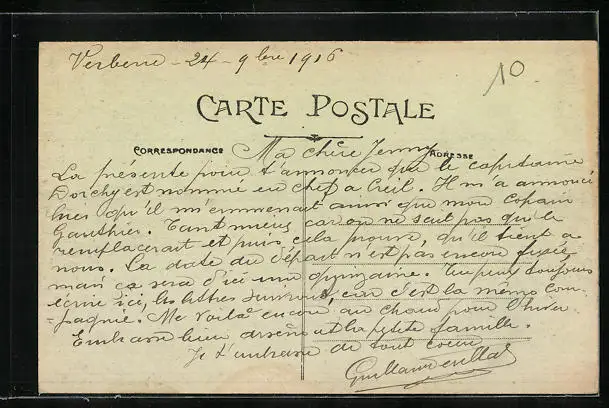 Verberie - 24 - 9bre 1916
10
CARTE POSTALE
CORRESPONDANCE
ADRESSE
Ma chère Jenny
La présente pour t'annoncer que le capitaine
Dorchy est nommé en chef a Creil. Il m'a annoncé
hier qu'il m'emmenait ainsi que mon copain
Gauthier. Tant mieux car on ne sait pas qui le
remplacerait et puis cela prouve, qu'il tient a
nous. La date du départ n'est pas encore fixée
mais ça sera d'ici une quinzaine. Tu peux toujours
écrire ici, les lettres suivront, car c'est la même Com-
pagnie. Me voilà encore au chaud pour l'hiver.
Embrasse bien et la petite famille.
Je t'embrasse de tout coeur